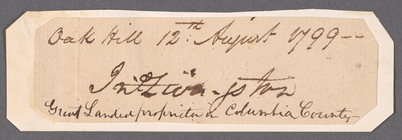 Oak Hill 12th August 1799--
Jn Livingston
Great Landed proprietor in Columbia County